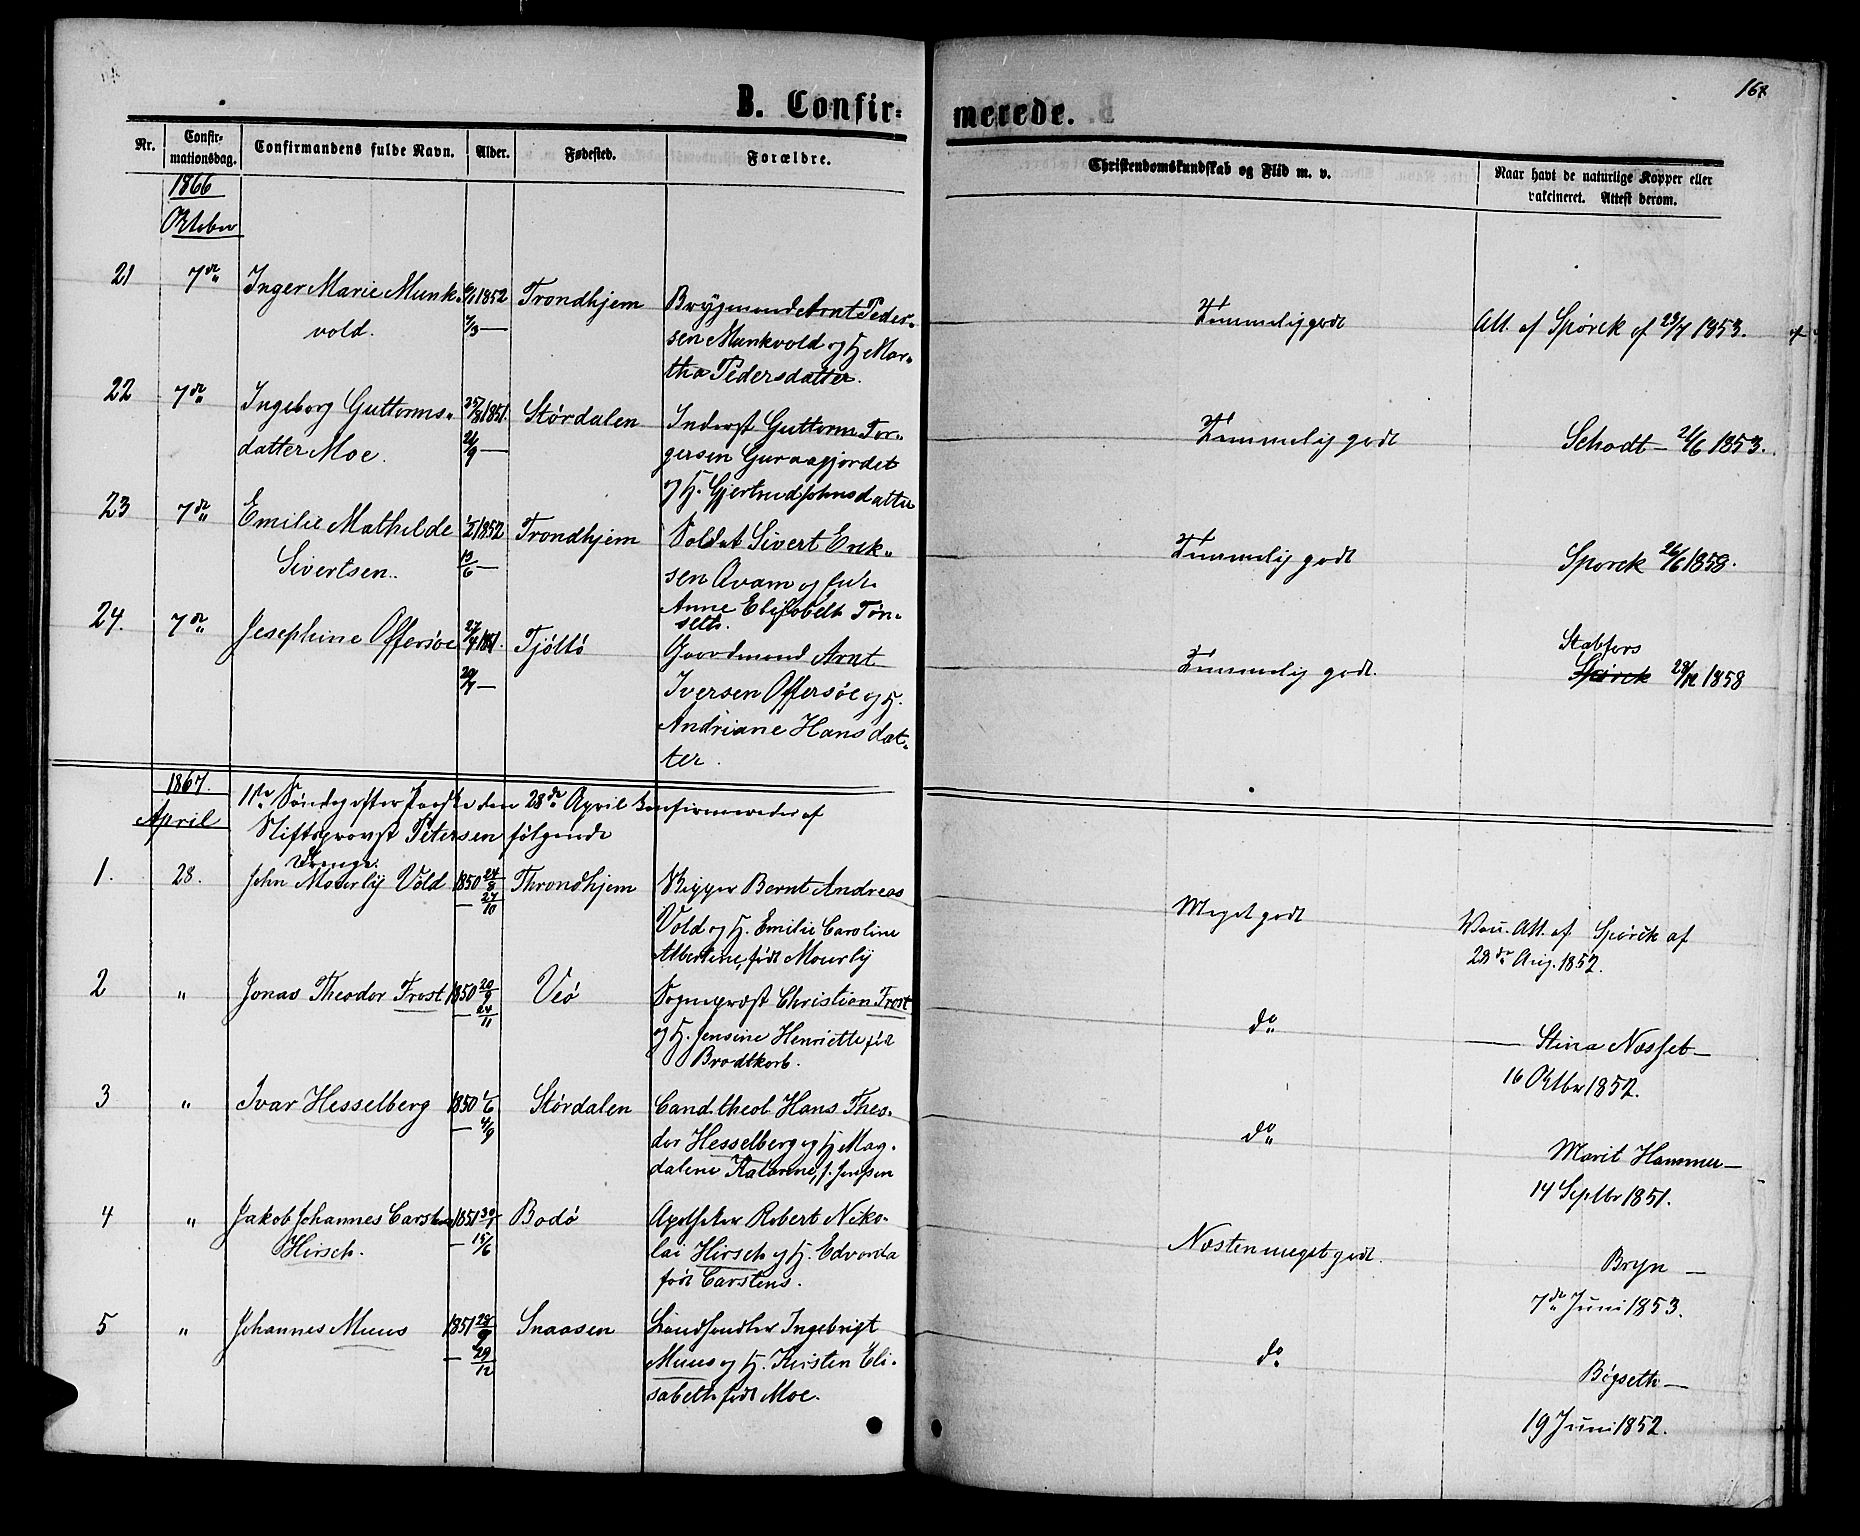 B. Confirmerede.
167
Nr.
Confirmationsdag.
Confirmandens fulde Navn.
Alder.
Fødested.
Forældre.
Christendomskundskab og Flid m. v.
Naar havt de naturlige Kopper eller
vakcineret. Attest derom.
1866
Oktober
21 7de Inger Marie Munk- 1852 Trondhjem Brygmand Arnt Peder-
vold. sen Munkvold og H. Mar-
tha Pedersdatter.
Temmelig godt Att. af Spørck af 1853.
22 7de Ingeborg Guttorms- 1851. Størdalen Inderst Guttorm Tor-
datter Moe. 21/9 gersen
og H. Gjertrud Johnsdatter
Temmelig godt Schødt — 1853.
23 7de Emilie Mathilde 1852 Trondhjem Soldat Sivert Erik-
Sivertsen. 13/6 sen Qvam og
Anne Elisabeth Tøn-
seth.
Temmelig godt Spørck 26/6 1858.
24. 7de Josephine Offersøe 27/4 1851. Tjøttø Gaardmand Arnt
Iversen Offersøe og H.
Andriane Hansdat-
ter.
Temmelig godt. Stabfors
Spørck 1858
1867.
April
1ste Søndag efter Paaske den 28de April konfirmeredes af
Stiftsprovst Petersen følgende
Drenge.
1. 28. John Mourly Vold 1850 24/8 Throndhjem Skipper Bernt Andreas
— 27/10 Vold og H. Emilie Caroline
Albertine, født Mourly
Meget godt Vacc. Att. af Spørck af
28de Aug. 1852.
2 " Jonas Theodor Frost 1850 20/9 Veø Sogneprest Christian Frost
— 24/11 og H. Jensine Henriette født
Brodtkorb.
do — Stina Næsset —
16 Oktbr 1852.
3 " Ivar Hesselberg 1850 1/6 Størdalen Cand. theol. Hans Theo-
— 4/9 dor Hesselberg og H. Mag-
dalene Katarine, f. Jenssen
do Marit Hammer —
14 Septbr 1851.
4 " Jakob Johannes Carstens 1851 30/1 Bodø Apotheker Robert Niko-
Hirsch. — 15/6 lai Hirsch og H. Edvarda
født Carstens.
Næsten meget godt. Bryn —
7de Juni 1853.
5 " Johannes Muus 1851 28/9 Snaasen Landhandler Ingebrigt
— 29/12 Muus og H. Kirsten Eli-
sabeth født Moe.
do Bøgseth —
19 Juni 1852.